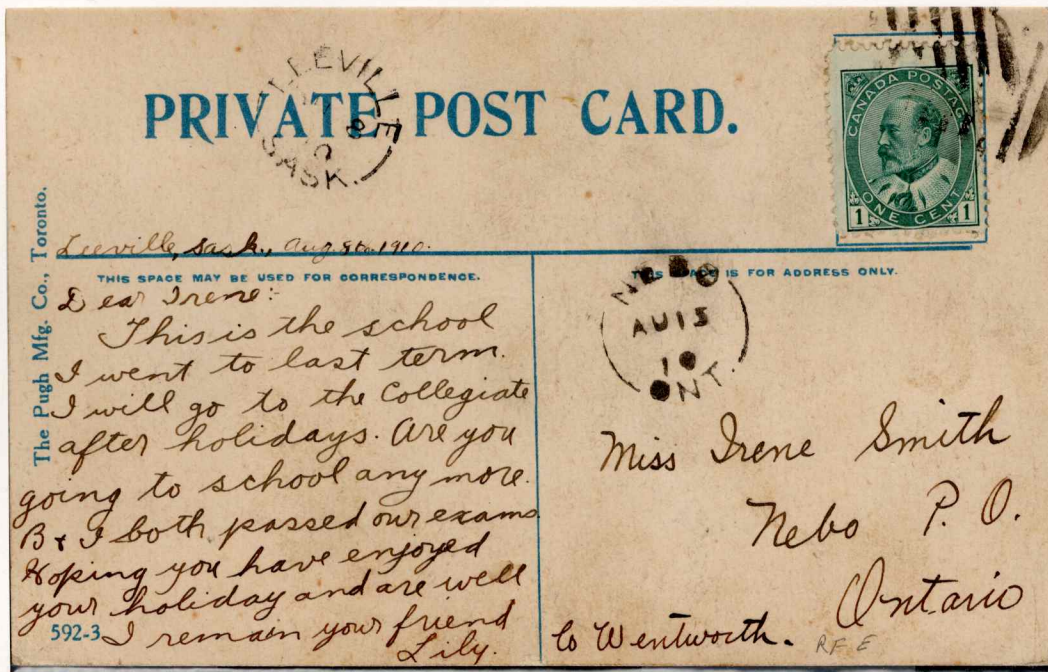 LEEVILLE
8
10
SASK.
PRIVATE POST CARD.
CANADA POSTAGE
1 ONE CENT 1
The Pugh Mfg. Co., Toronto.
Leeville, Sask., Aug 9th 1910.
THIS SPACE MAY BE USED FOR CORRESPONDENCE.
Dear Irene:-
This is the school
I went to last term.
I will go to the Collegiate
after holidays. Are you
going to school any more.
B & I both passed our exams
Hoping you have enjoyed
your holiday and are well
I remain your friend
Lily.
592-3
THIS SPACE IS FOR ADDRESS ONLY.
NEBO
AU 15
10
ONT.
Miss Irene Smith
Nebo P. O.
Ontario
Co Wentworth.
RF E